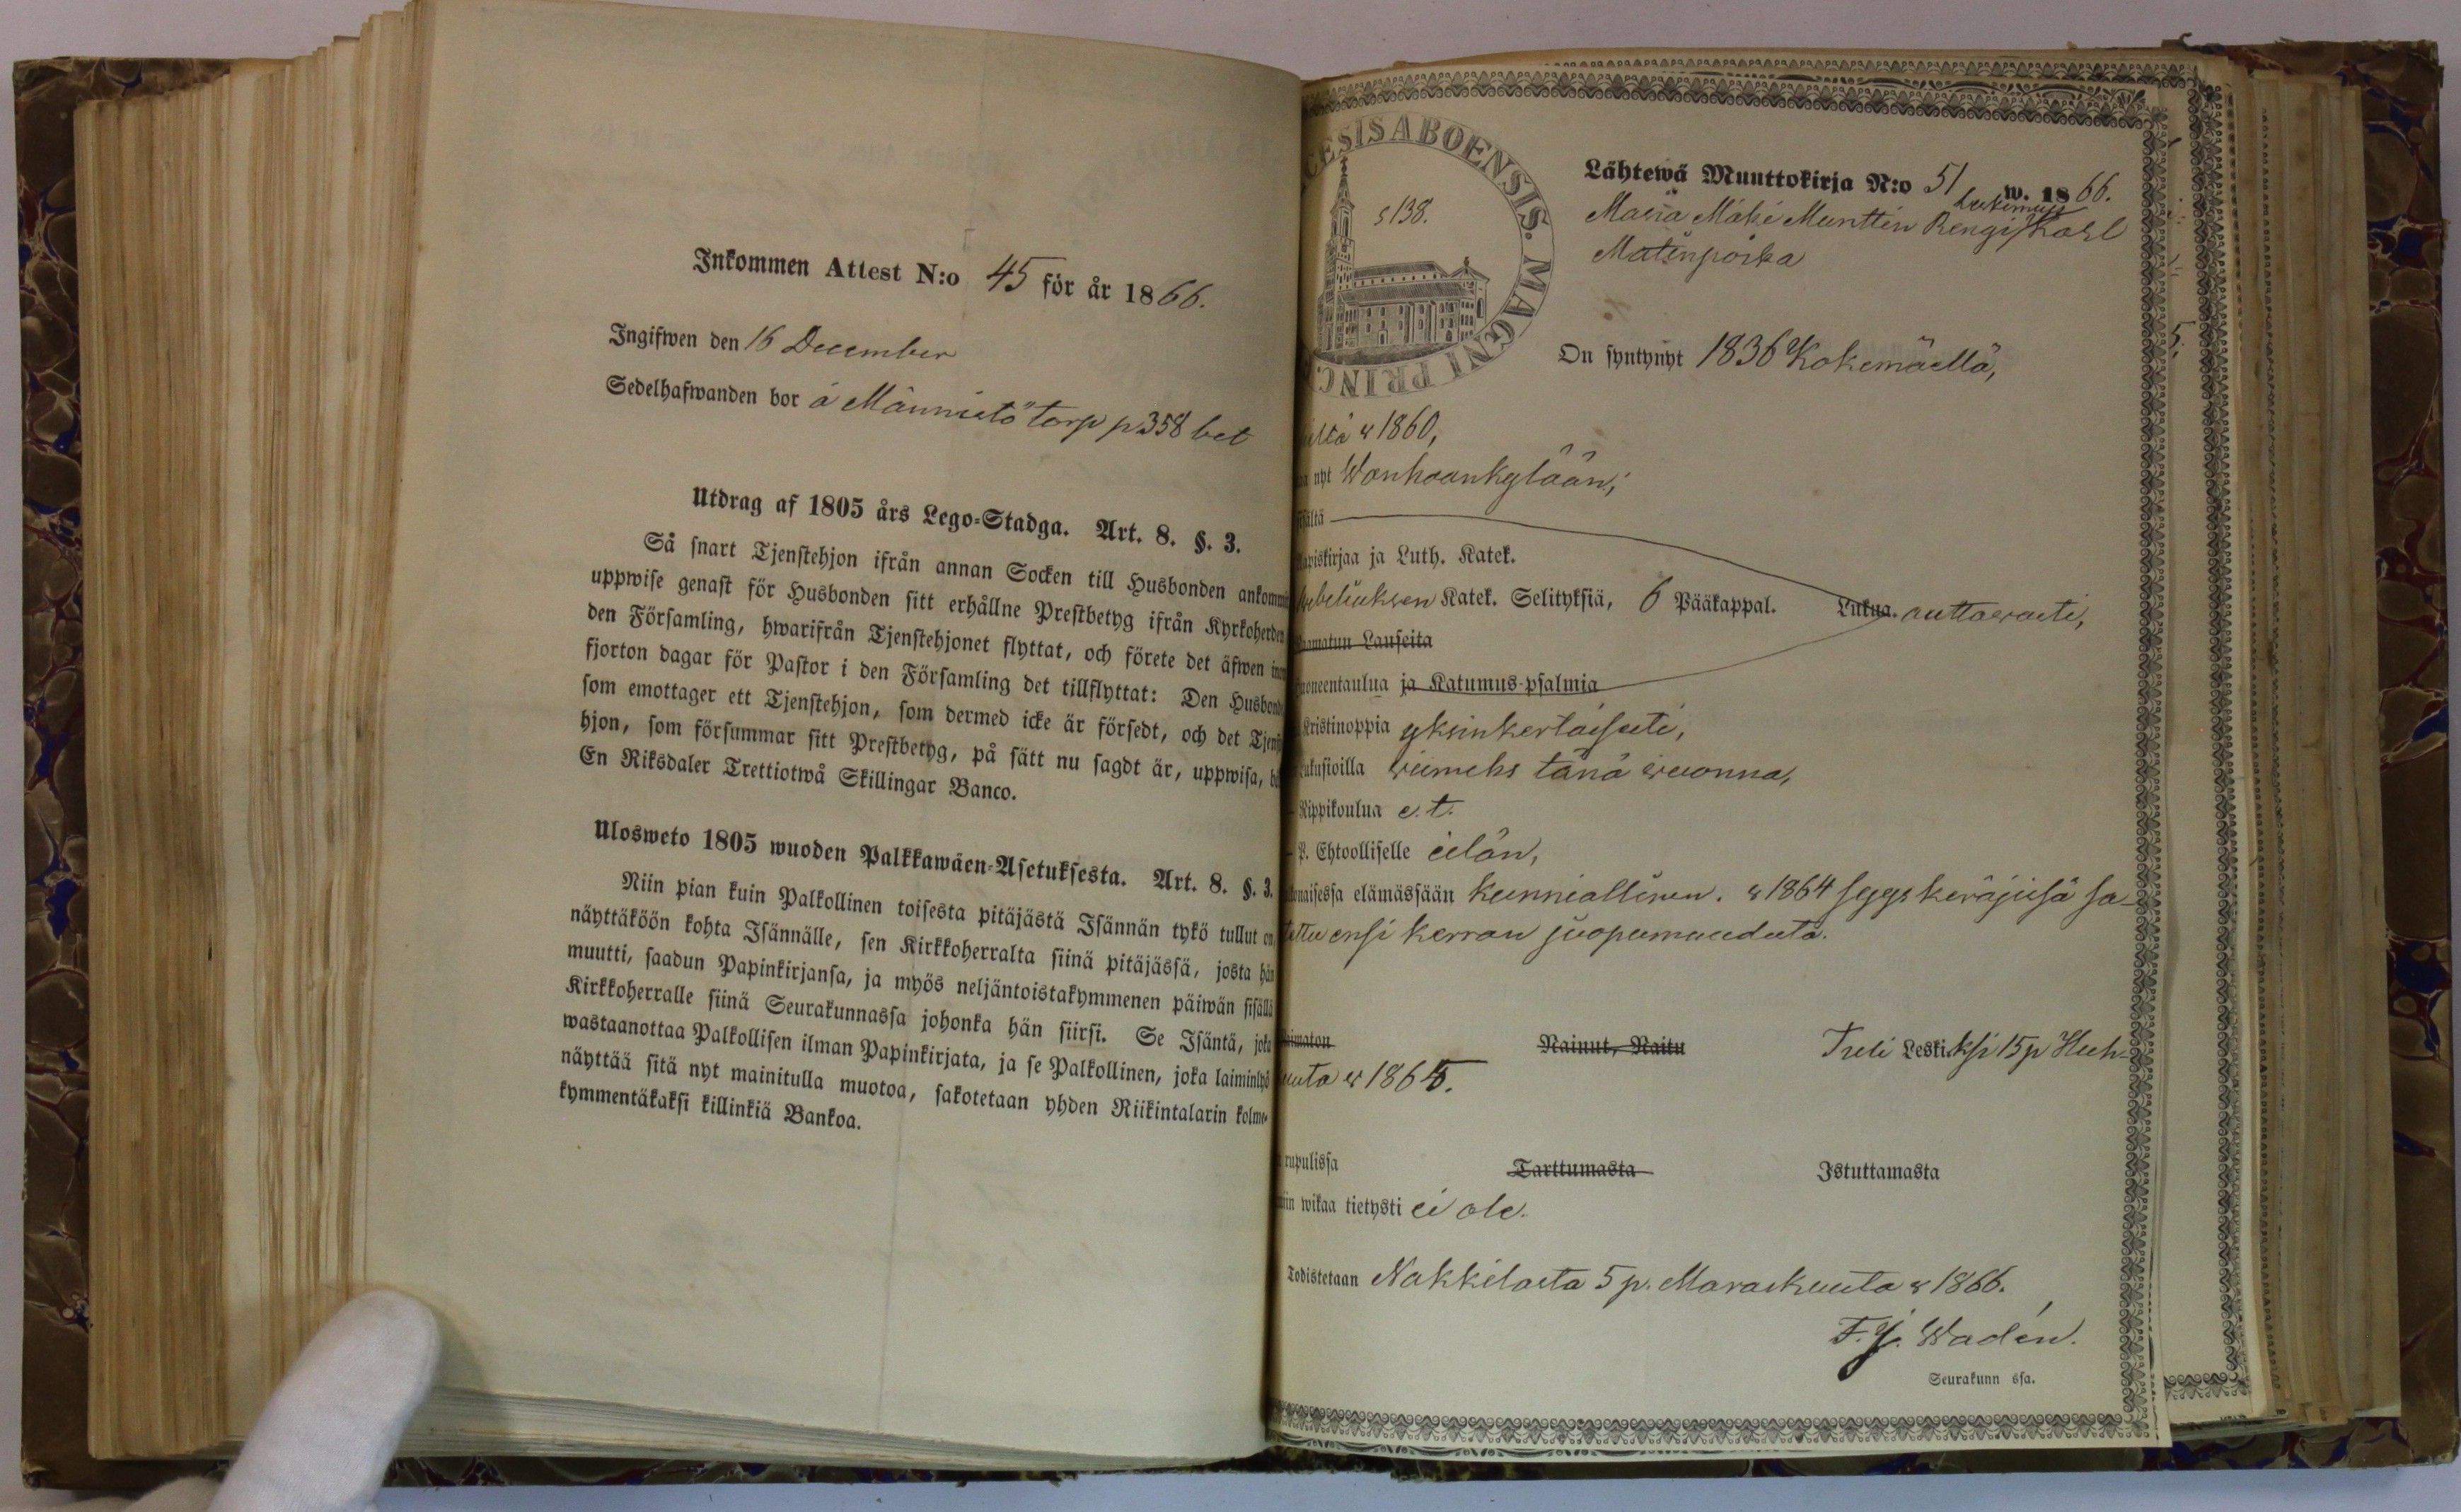 Inkommen Attest N:o 45 för år 1866.
Ingifwen den 16 December
Sedelhafwanden bor å Männistö torp p 358 bet
Utdrag af 1805 års Lego-Stadga. Art. 8. §. 3.
Så snart Tjenstehjon ifrån annan Socken till Husbonden ankommit
uppwise genast för Husbonden sitt erhållne Prestbetyg ifrån Kyrkoherden
den Församling, hwarifrån Tjenstehjonet flyttat, och förete det äfwen inom
fjorton dagar för Pastor i den Församling det tillflyttat: Den Husbonde
som emottager ett Tjenstehjon, som dermed icke är försedt, och det Tjenste
hjon, som försummar sitt Prestbetyg, på sätt nu sagdt är, uppwisa,
En Riksdaler Trettiotwå Skillingar Banco.
Ulosweto 1805 wuoden Palkkawäen-Asetuksesta. Art. 8. §. 3.
Niin pian kuin Palkollinen toisesta pitäjästä Isännän tykö tullut on,
näyttäköön kohta Isännälle, sen Kirkkoherralta siinä pitäjässä, josta hän
muutti, saadun Papinkirjansa, ja myös neljäntoistakymmenen päiwän sisällä
Kirkkoherralle siinä Seurakunnassa johonka hän siirsi. Se Isäntä, joka
wastaanottaa Palkollisen ilman Papinkirjata, ja se Palkollinen, joka laiminlyö
näyttää sitä nyt mainitulla muotoa, sakotetaan yhden Riikintalarin kolme-
kymmentäkaksi killinkiä Bankoa.
CESIS ABOENSIS. MAGNI PRINC
s 138.
Lähtewä Muuttokirja N:o 51 w. 1866.
Maria Mäki Munttin Rengi Karl
Matinpoika
On syntynyt 1836 Kokemäellä,
ältä w 1860,
nyt Wanhaankylään;
sältä
apiskirjaa ja Luth. Katek.
Katek. Selityksiä, 6 Pääkappal. Lukua. auttawasti,
amatun Lauseita
uoneentaulua ja Katumus-psalmia
Kristinoppia yksinkertaisesti,
ukusioilla wiimeks tänä wuonna,
Rippikoulua e. t.
P. Ehtoolliselle eilän,
maisessa elämässään kunniallinen. w 1864 syys keräjiisä sa-
tettu ensi kerran juopumuudesta.
aimaton Nainut, Naitu Tuli Leskiksi 15 p Huh-
uuta w 1865.
rupulissa Tarttumasta Istuttamasta
iin wikaa tietysti ei ole.
Todistetaan Nakkilasta 5 p. Maraskuuta w 1866.
F. J. Wadén.
Seurakunn ssa.